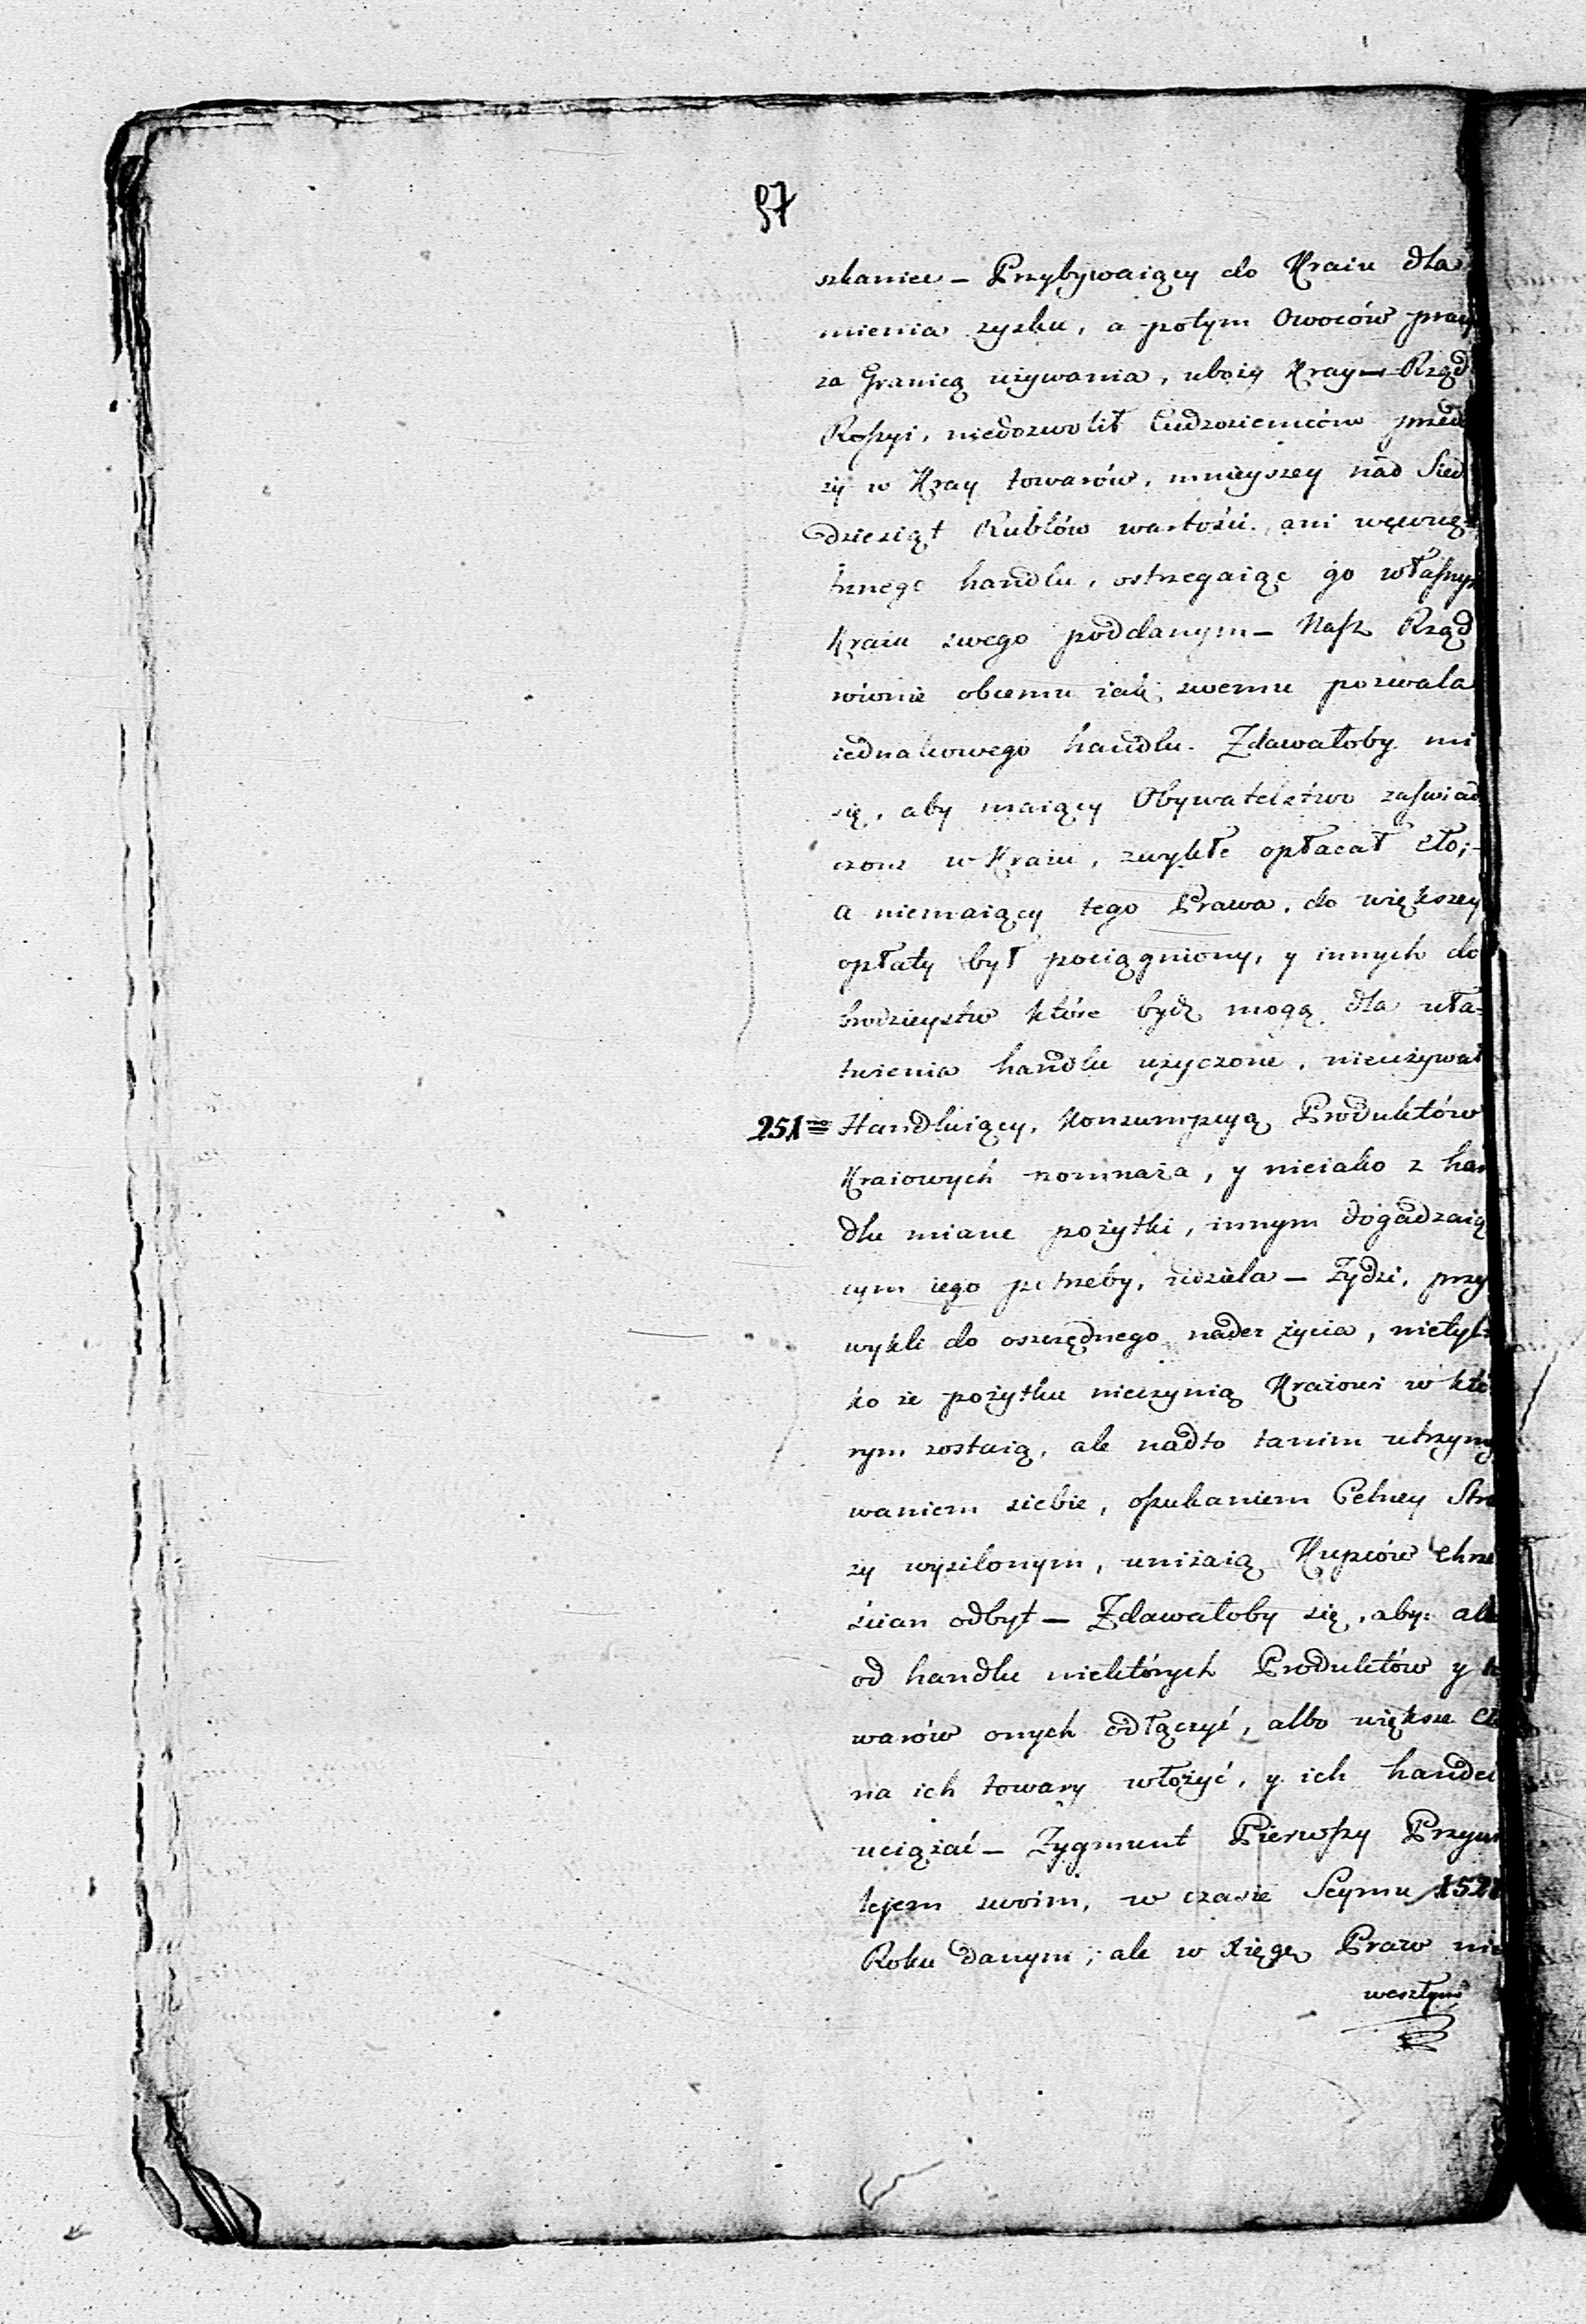 97
szkaniec – Przybywaiący do Kraiu dla
mienia zysku, a potym Owoców pracy
za Granicą używania, uboży Kray – Rząd
Roſsyi, niedozwolił Cudzoziemców
ży w Kray towarów, mnieyszey nad Sied
dziesiąt Rublów wartości, ani wewnę-
trznego handlu, ostrzegaiąc go właſnym
Kraiu swego poddanym – Naſz Rząd
równie obcemu iak swemu pozwala
iednakowego handlu. Zdawałoby mi
się, aby maiący Obywatelstwo zaſwiad
czone w Kraiu, zwykłe opłacał cło;
a niemaiący tego Prawa, do większey
opłaty był pociągniony, y innych do
brodzieystw które bydź mogą dla uła-
twienia handlu użyczone, nieużywał
251mo Handluiący, Konsumpcyą Produktów
Kraiowych pomnaża, y nieiako z han
dlu miane pożytki, innym dogadzaią
cym iego potrzeby, udziela – Żydzi, przy
wykli do oszczędnego nader życia, nietyl
ko że pożytku nieczynią Kraiowi w któ
rym zostaią, ale nadto tanim utrzymy
waniem siebie, oſzukaniem Celney Stra
ży wysilonym, uniżaią Kupców Chrze
ścian odbyt – Zdawałoby się, aby: albo
od handlu niektórych Produktów y to
warów onych odłączyć, albo większe Cło
na ich towary włożyć, y ich handel
uciążać – Zygmunt Pierwſzy Przywi
lejem swoim, w czasie Seymu 152
Roku danym, ale w Xięgę Praw nie
weszłym